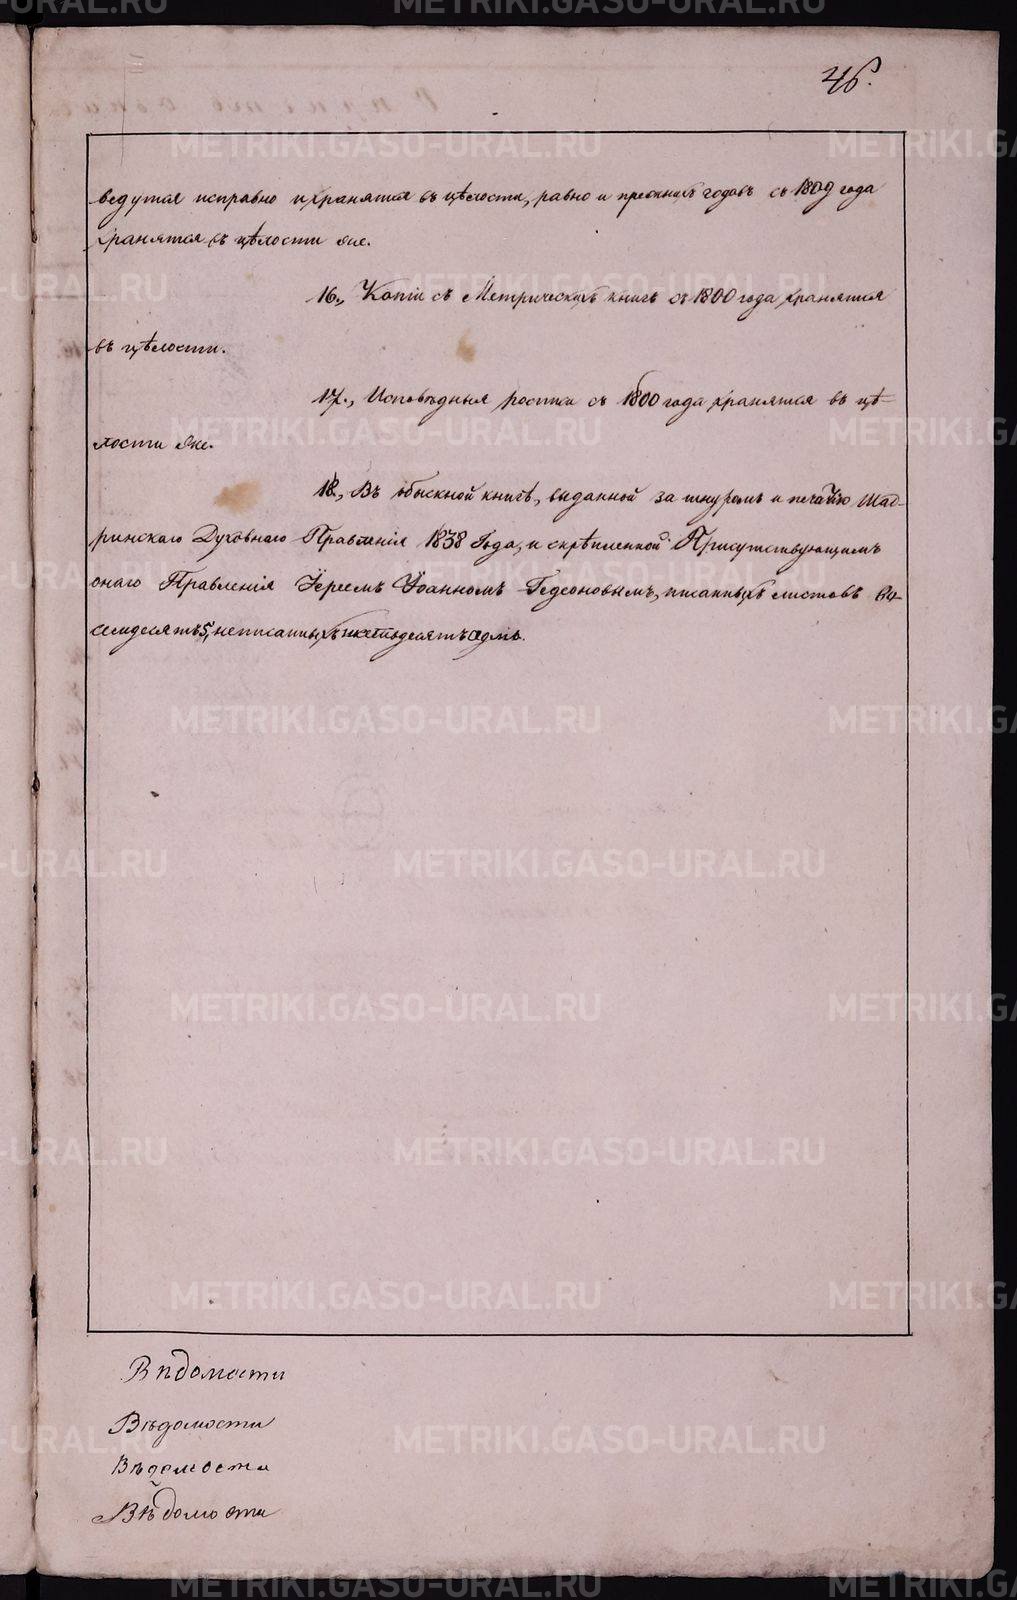 46.
ведутся исправно и хранятся въ цѣлости, равно и прежнихъ годовъ съ 1809 года
хранятся въ цѣлости же.
16., Копіи съ Метрическихъ книгъ съ 1800 года хранятся
въ цѣлости.
17., Исповѣдныя росписи съ 1800 года хранятся въ цѣ-
лости же.
18., Въ обыскной книгѣ, выданной за шнуромъ и печатью Шад-
ринскаго Духовнаго Правленія 1838 Года, и скрѣпленной Присутствующимъ
онаго Правленія Іереемъ Іоанномъ Гедеоновымъ, писанныхъ листовъ
семдесятъ 5, неписанныхъ
Вѣдомости
Вѣдомости
Вѣдомости
Вѣдомости
METRIKI.GASO-URAL.RU